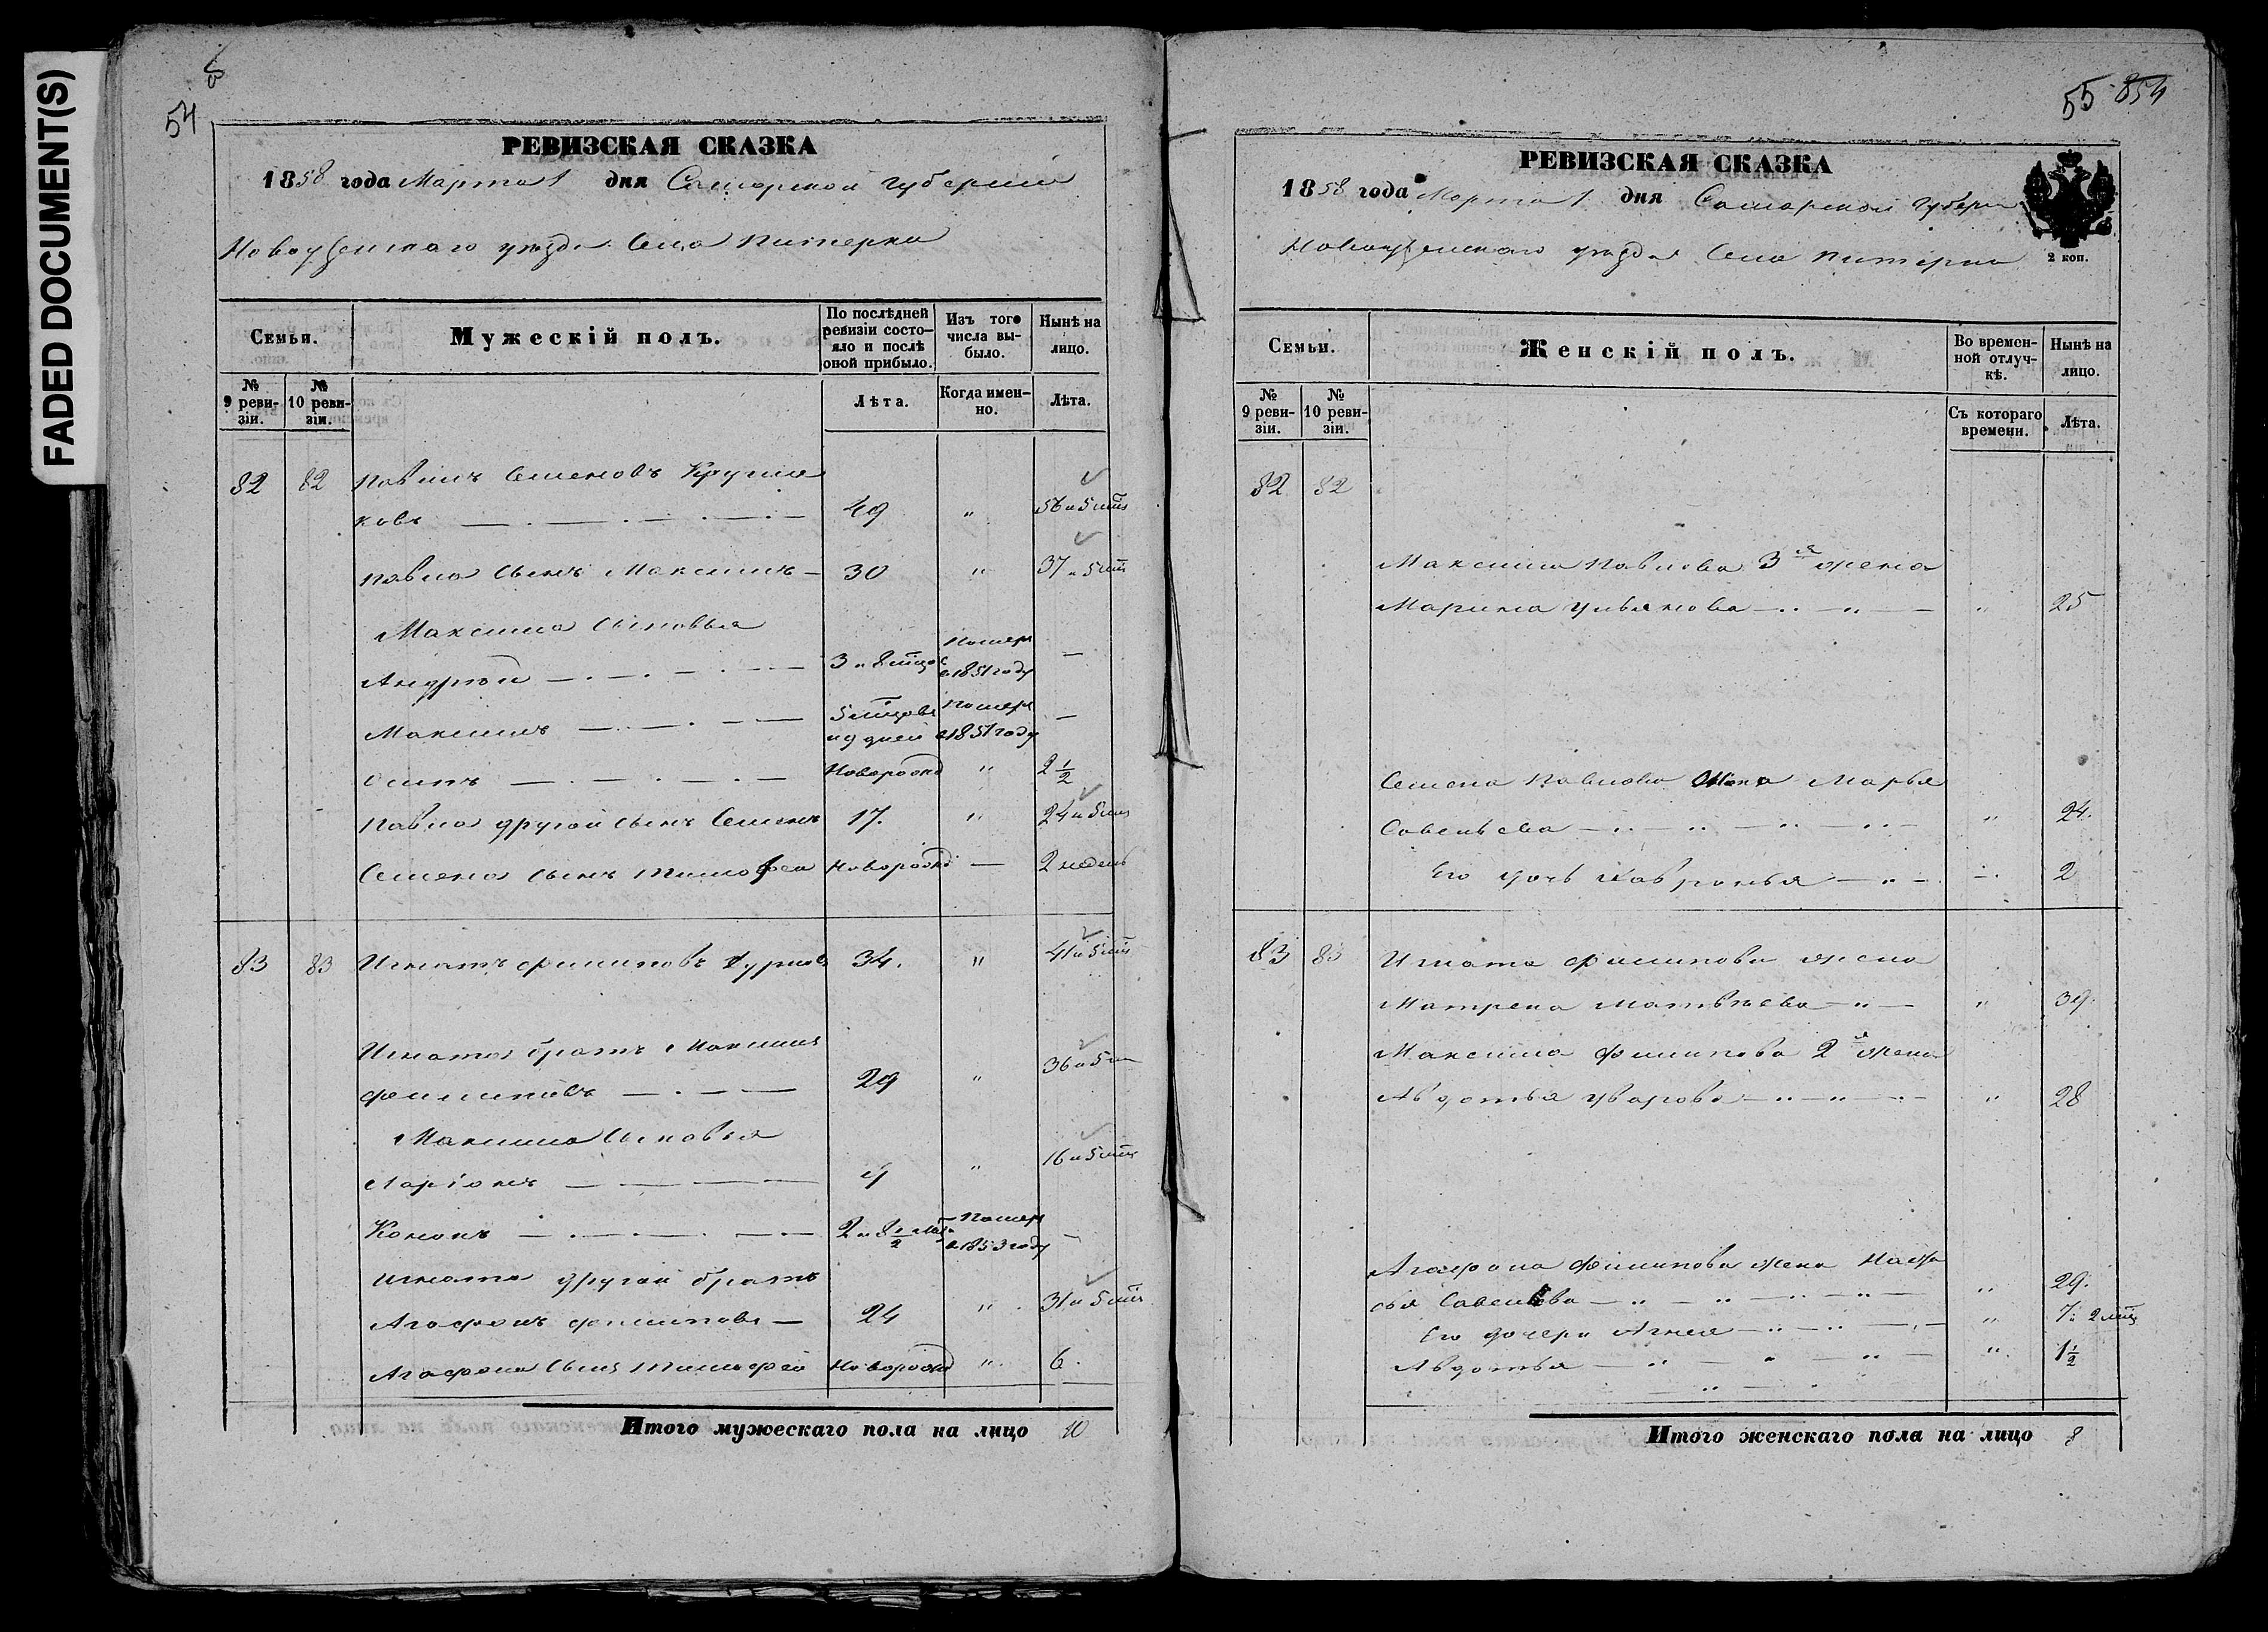 FADED DOCUMENT(S)
54
РЕВИЗСКАЯ СКАЗКА
1858 года Марта 1 дня Самарской губернии
Новоузенскаго уезда Села Питерки
Семьи.
Мужескій полъ.
По послѣдней ревизіи состо-
яло и послѣ
оной прибыло.
Изъ того
числа вы-
было.
Нынѣ на
лицо.
№
9 реви-
зіи.
№
10 реви-
зіи.
Лѣта.
Когда имен-
но.
Лѣта.
82 82 Павелъ Семеновъ Кругля
ковъ 49 " 56 и 5 мцъ
Павла сынъ Максимъ 30 " 37 и 5 мц
Максима сыновья
Андрѣй 3 и 8 мцов Помер в 1851 году —
Максимъ 5 мцовъ и 9 дней Помер в 1851 году —
Осипъ Новорожд " 2 1/2
Павла другой сынъ Семенъ 17. " 24 и 5 мцъ
Семена сынъ Тимофей Новорожд — 2 недель
83 83 Игнатъ Филиповъ 34. " 41 и 5 мцъ
Игната братъ Максимъ
Филиповъ 29 " 36 и 5 м
Максима сыновья
Ларіонъ 9 " 16 и 5 мцъ
Кононъ 2 и 8 1/2 мцо Помер в 1853 году —
Игната другой братъ
Агафонъ Филиповъ 24 " 31 и 5 мцъ
Агафона сынъ Тимофей Новорожд " 6.
Итого мужескаго пола на лицо 10
55 854
РЕВИЗСКАЯ СКАЗКА
1858 года Марта 1 дня Самарской губерн
Новоузенскаго уезда Села Питерки
2 коп.
Семьи.
Женскій полъ.
Во времен-
ной отлуч-
кѣ.
Нынѣ на
лицо.
№
9 реви-
зіи.
№
10 реви-
зіи.
Съ котораго
времени.
Лѣта.
82 82
Максима Павлова 3я жена
Марина Ульянова " 25
Семена Павлова жена Марья
Савельева " 24.
Его дочь Хавронья 2
83 83 Игната Филипова жена
Матрена Матвѣева " 39.
Максима Филипова 2я жена
Авдотья Уварова " 28
Агафона Филипова жена Наста
сья Савельева " 29.
Его дочери Агнея " 7 и 2 мцъ
Авдотья " 1 1/2
Итого женскаго пола на лицо 8